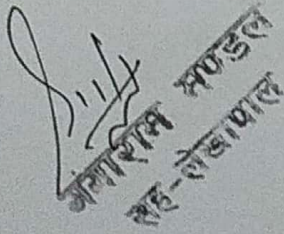 गंगाराम मण्डल
सह-लेखापाल